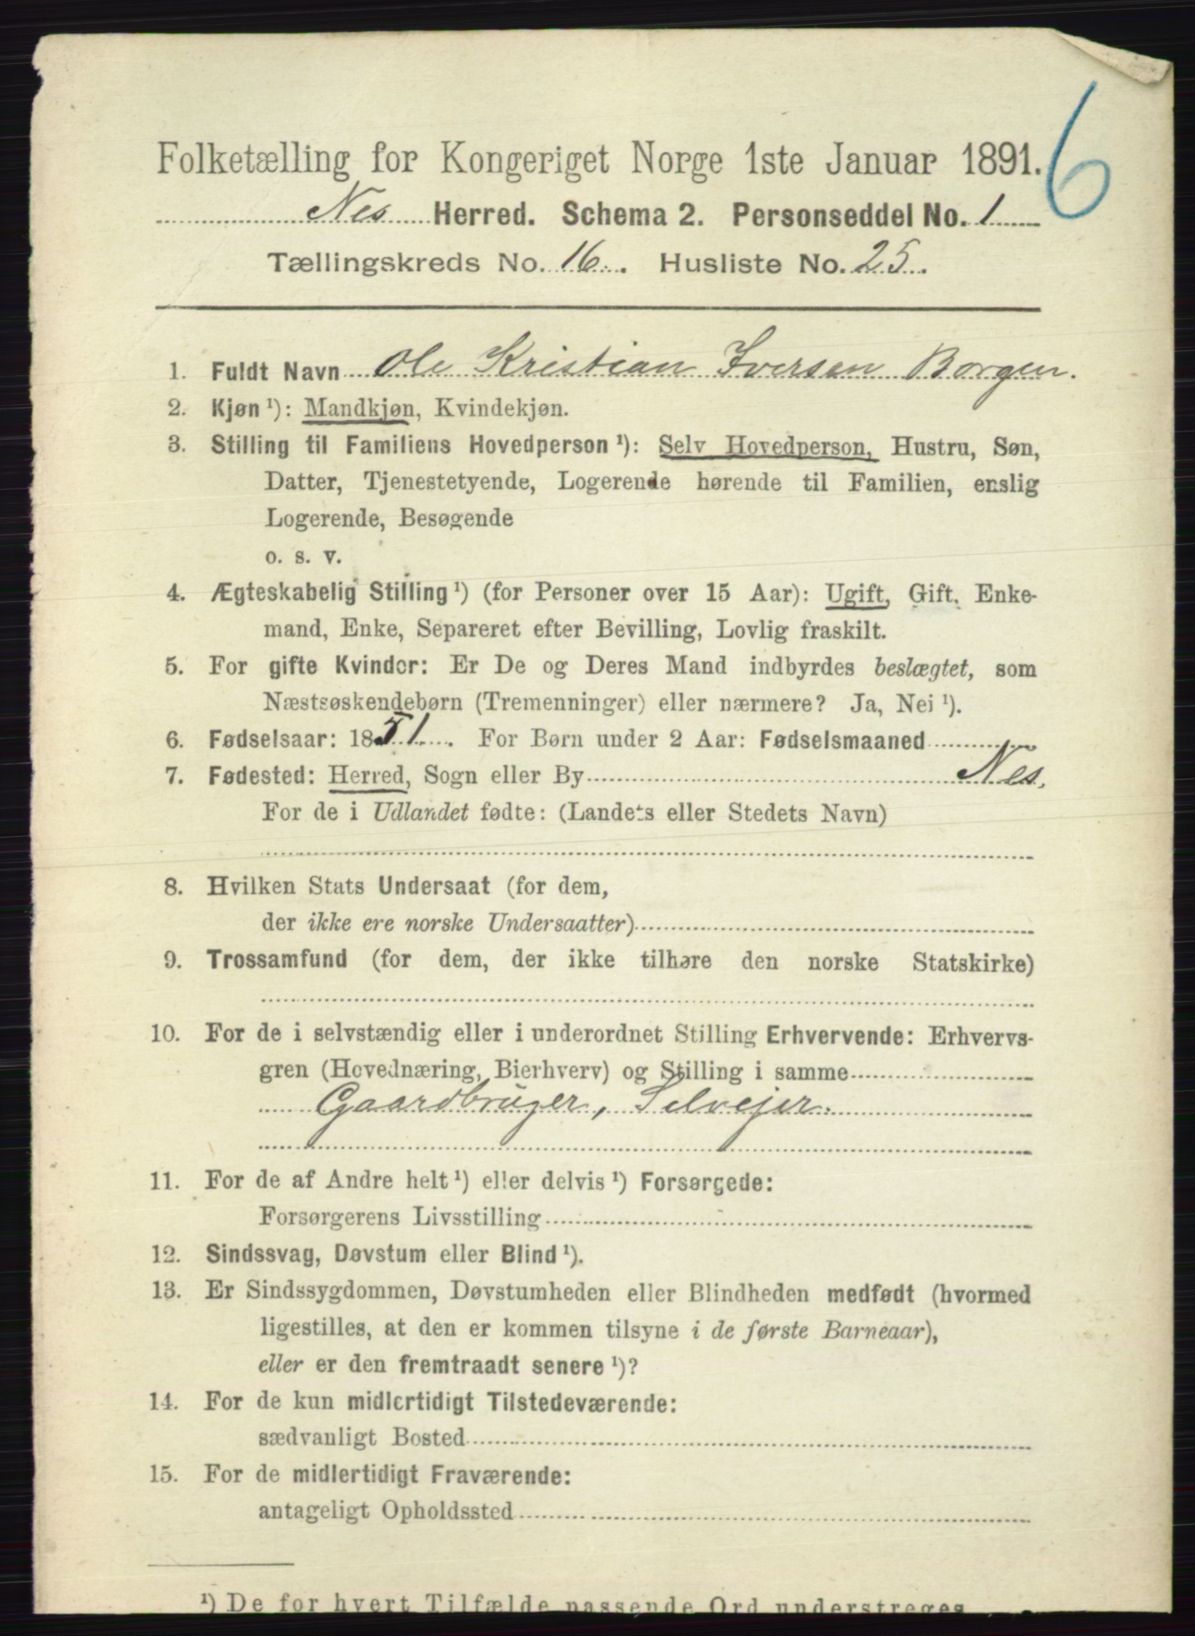 6
Folketælling for Kongeriget Norge 1ste Januar 1891.
Nes Herred. Schema 2. Personseddel No. 1
Tællingskreds No. 16. Husliste No. 25.
1. Fuldt Navn Ole Kristian Iversen Borgen.
2. Kjøn ¹): Mandkjøn, Kvindekjøn.
3. Stilling til Familiens Hovedperson ¹): Selv Hovedperson, Hustru, Søn,
Datter, Tjenestetyende, Logerende hørende til Familien, enslig
Logerende, Besøgende
o. s. v.
4. Ægteskabelig Stilling ¹) (for Personer over 15 Aar): Ugift, Gift, Enke-
mand, Enke, Separeret efter Bevilling, Lovlig fraskilt.
5. For gifte Kvinder: Er De og Deres Mand indbyrdes beslægtet, som
Næstsøskendebørn (Tremenninger) eller nærmere? Ja, Nei ¹).
6. Fødselsaar: 1851. For Børn under 2 Aar: Fødselsmaaned
7. Fødested: Herred, Sogn eller By Nes.
For de i Udlandet fødte: (Landets eller Stedets Navn)
8. Hvilken Stats Undersaat (for dem,
der ikke ere norske Undersaatter)
9. Trossamfund (for dem, der ikke tilhøre den norske Statskirke)
10. For de i selvstændig eller i underordnet Stilling Erhvervende: Erhvervs-
gren (Hovednæring, Bierhverv) og Stilling i samme
Gaardbruger, Selvejer.
11. For de af Andre helt ¹) eller delvis ¹) Forsørgede:
Forsørgerens Livsstilling
12. Sindssvag, Døvstum eller Blind ¹).
13. Er Sindssygdommen, Døvstumheden eller Blindheden medfødt (hvormed
ligestilles, at den er kommen tilsyne i de første Barneaar),
eller er den fremtraadt senere ¹)?
14. For de kun midlertidigt Tilstedeværende:
sædvanligt Bosted
15. For de midlertidigt Fraværende:
antageligt Opholdssted
¹) De for hvert Tilfælde passende Ord understreges.